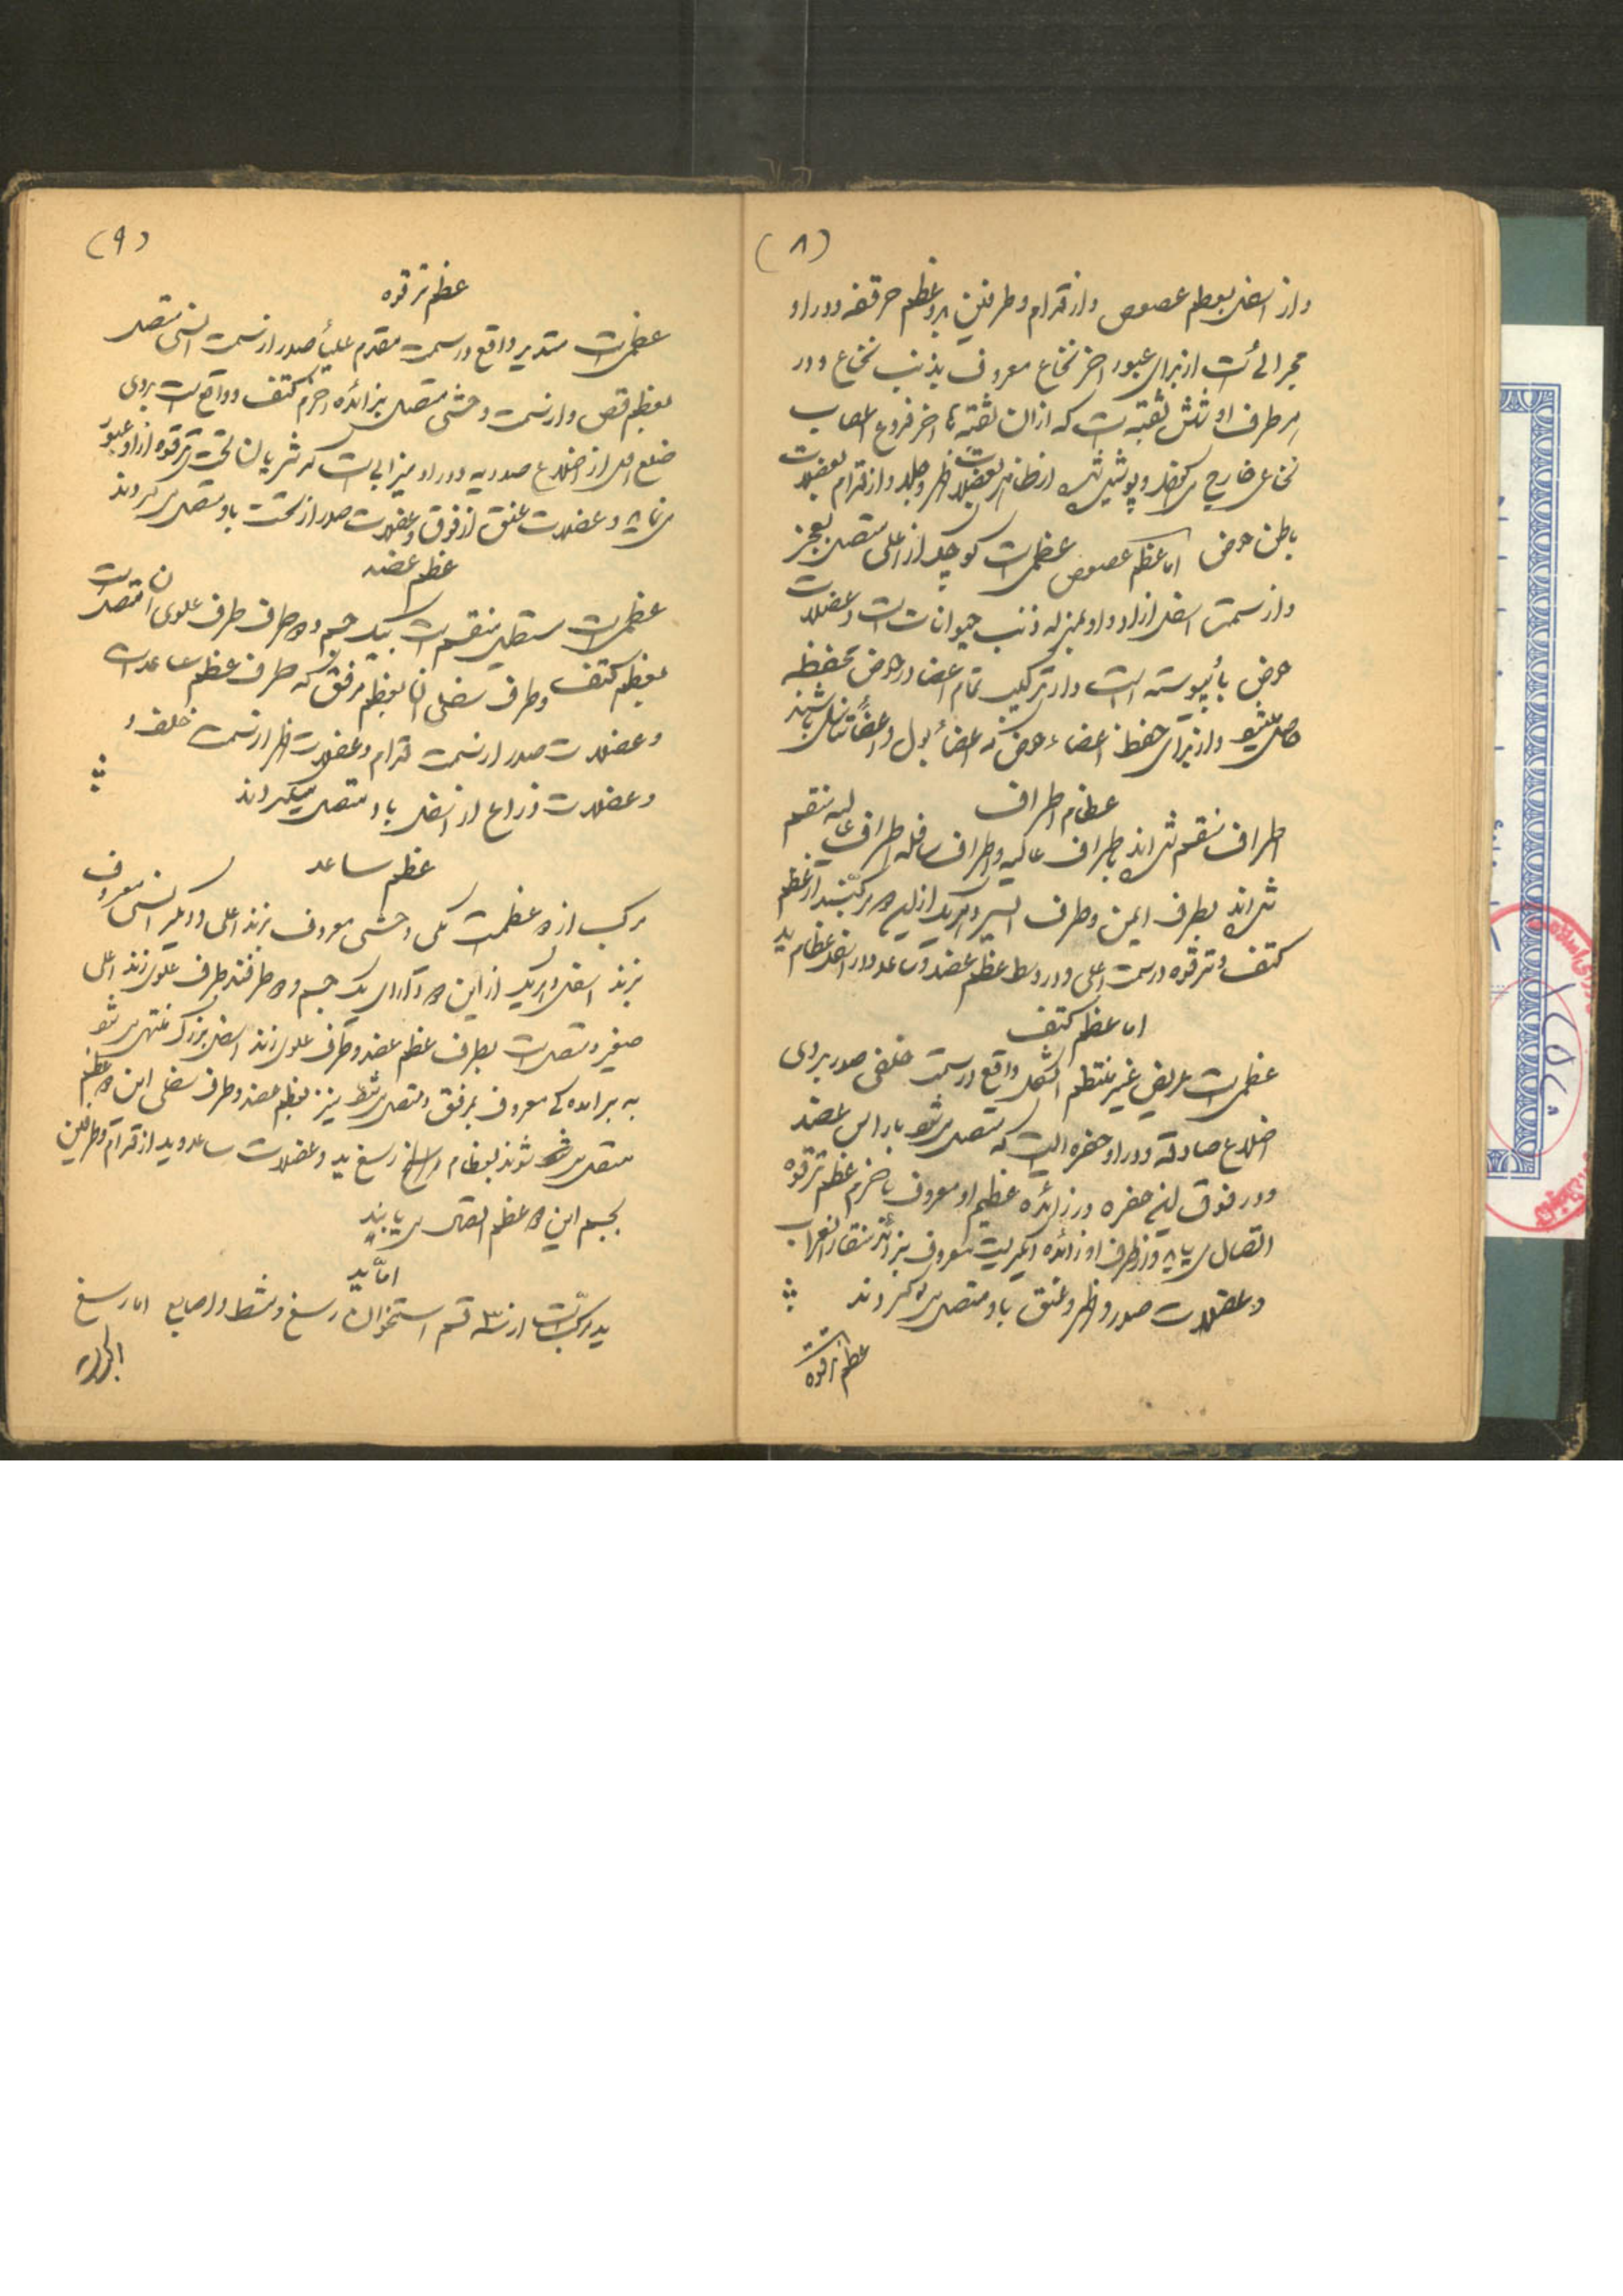 (۸)
و از اسفل بعظم عصوص و از قدام و طرفین بدو عظم حرقفه و در او
مجرائیست از برای عبور اخر نخاع معروف بذنب نخاع و در
هر طرف او شش ثقبه است که از ان ثقبه ها اخر فروع اعصاب
نخاعی خارج میشود و پوشیده شده از ظاهر بعضلات ظهر و جلد و از قدام بعضلات
باطن حوض اما عظم عصوص عظمی است کوچک از اعلی متصل بعجز
و از سمت اسفل ازاد و او بمنزله ذنب حیوانات است و عضلات
حوض باو پیوسته است و از ترکیب تمام اعضا در حوض محفظه
حاصل میشود و از برای حفظ اعضاء حوض که اعضاء بول و اعضاء تناسل باشند
عظام اطراف
اطراف منقسم شده اند باطراف عالیه و اطراف سافله اطراف عالیه منقسم
شده اند بطرف ایمن و طرف ایسر و هر یک از این دو مرکبند از عظم
کتف و ترقوه در سمت اعلی و در وسط عظم عضد و ساعد و در اسفل عظام ید
اما عظم کتف
عظمی است عریض غیر منتظم الشکل واقع در سمت خلفی صدر بروی
اضلاع صادقه و در او حفره ایست که متصل میشود باراس عضد
و در فوق این حفره در زائده عظیم او معروف باخرم عظم ترقوه
اتصال می یابد و از طرف او زائده دیگریست معروف بزائده منقار الغراب
و عضلات صدر و ظهر و عنق باو متصل میگردند
عظم ترقوه
(۹)
عظم ترقوه
عظمی است مستدیر واقع در سمت مقدم علیاء صدر از سمت انسی متصل
بعظم قص و از سمت وحشی متصل بزائده اخرم کتف و واقع است بروی
ضلع اول از اضلاع صدریه و در او میزابی است که شریان تحت ترقوه از او عبور
می نماید و عضلات عنق از فوق و عضلات صدر از تحت باو متصل میگردند
عظم عضد
عظمی است مستطیل منقسم است بیک جسم و دو طرف طرف علوی ان متصل است
بعظم کتف و طرف سفلی ان بعظم مرفق که طرف عظم ساعد است
و عضلات صدر از سمت قدام و عضلات ظهر از سمت خلف و
و عضلات ذراع از اسفل باو متصل میگردند
عظم ساعد
مرکب از دو عظمست یکی وحشی معروف بزند اعلی و دیگر انسی معروف
بزند اسفل و هر یک از این دو دارای یک جسم و دو طرفند طرف علوی زند اعلی
صغیر و متصل است بطرف عظم عضد و طرف علوی زند اسفل بزرگ منتهی میشود
به برامده کی معروف بمرفق و متصل میشود نیز بعظم عضد و طرف سفلی این دو عظم
متصل میشوند بعظام رسغ ید و عضلات ساعد و ید از قدام و طرفین
بجسم این دو عظم اتصال می یابند
اما ید
ید مرکب است از سه قسم استخوان رسغ و مشط و اصابع اما رسغ